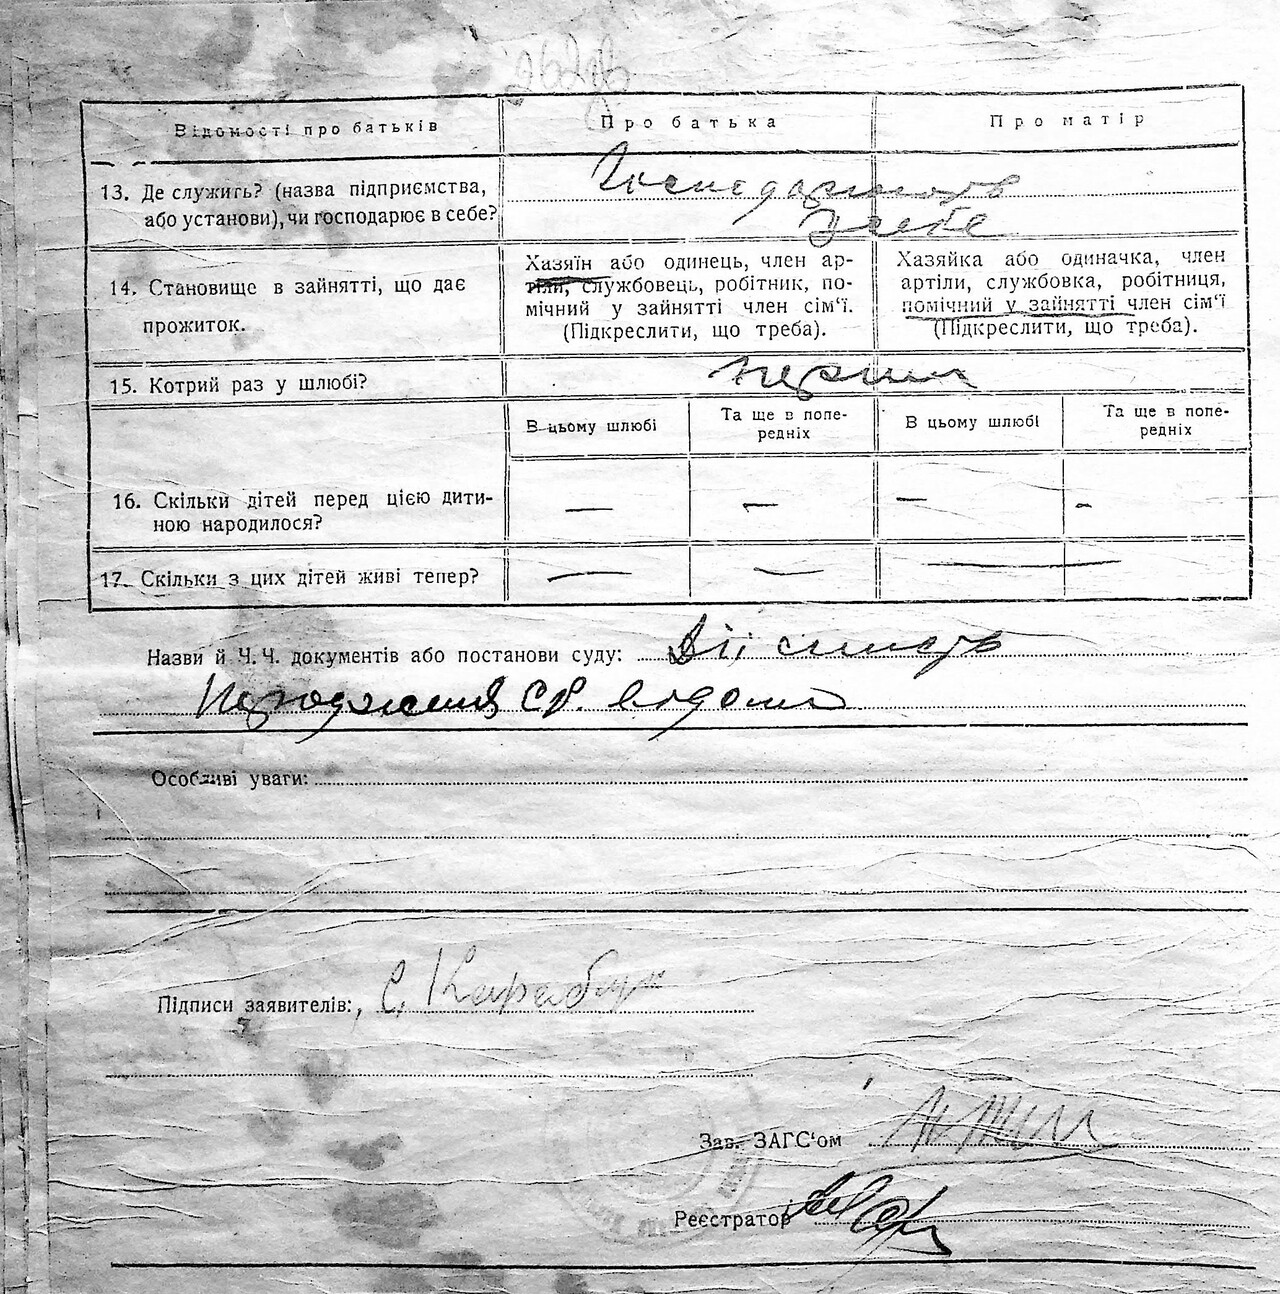 Відомості про батьків
Про батька
Про матір
13. Де служить? (назва підприємства,
або установи), чи господарює в себе?
Господарюють
в себе
14. Становище в зайнятті, що дає
прожиток.
Хазяїн або одинець, член ар-
тілі, службовець, робітник, по-
мічний у зайнятті член сім‘ї.
(Підкреслити, що треба).
Хазяйка або одиначка, член
артіли, службовка, робітниця,
помічний у зайнятті член сім‘ї
(Підкреслити, що треба).
15. Котрий раз у шлюбі?
перший
В цьому шлюбі
Та ще в попе-
редніх
В цьому шлюбі
Та ще в попе-
редніх
16. Скільки дітей перед цією дити-
ною народилося?
— — — -
17. Скільки з цих дітей живі тепер?
— — —
Назви й Ч. Ч. документів або постанови суду:
Особливі уваги:
Підписи заявителів:, С. Карабун
Зав. ЗАГС‘ом
Реєстратор